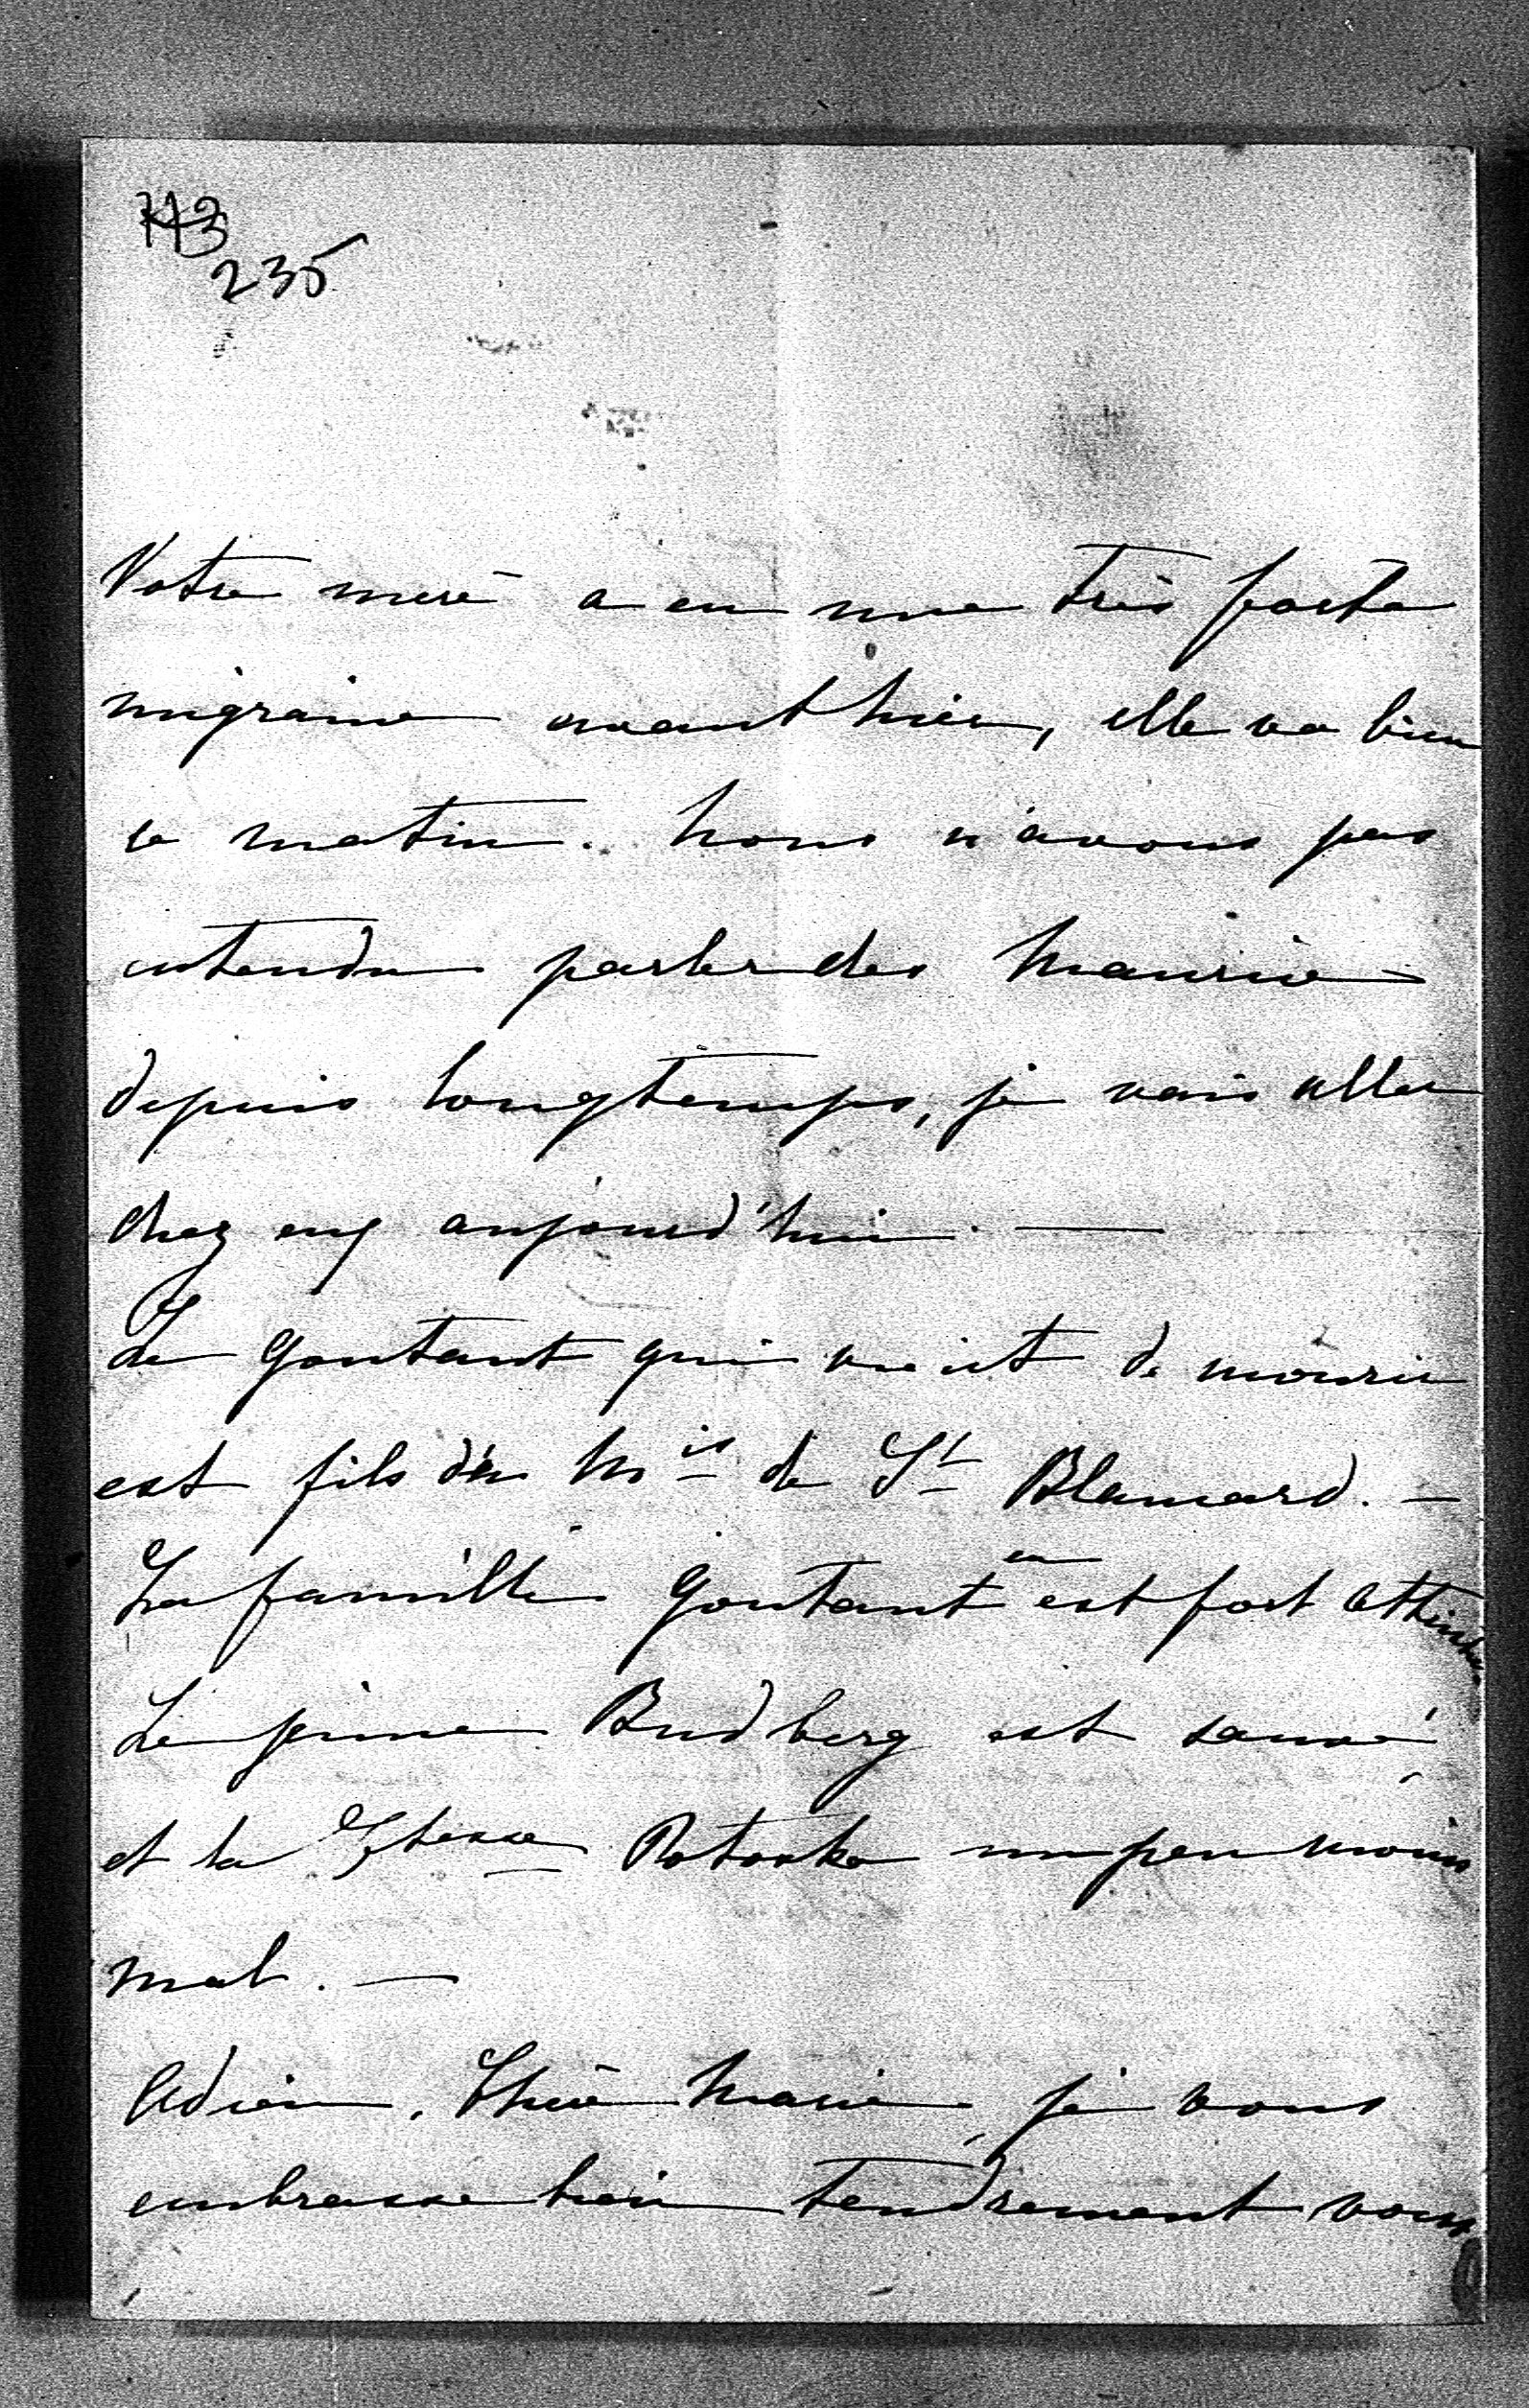 235
Votre mere a eu une très forte
migraine avant hier, elle va bien
ce matin. Nous n'avons pas
entendu parler des Maurice
depuis longtemps, je vais aller
chez eux aujourd'hui. —
Le Gontaut qui vient de mourir
est fils du Mis de St Blancard. —
La famille Gontaut en est fort attristée.
Le jeune Budberg est sauvé
et la Ctesse Potocka un peu moins
mal. —
Adieu, Chère Marie, je vous
embrasse bien tendrement vous